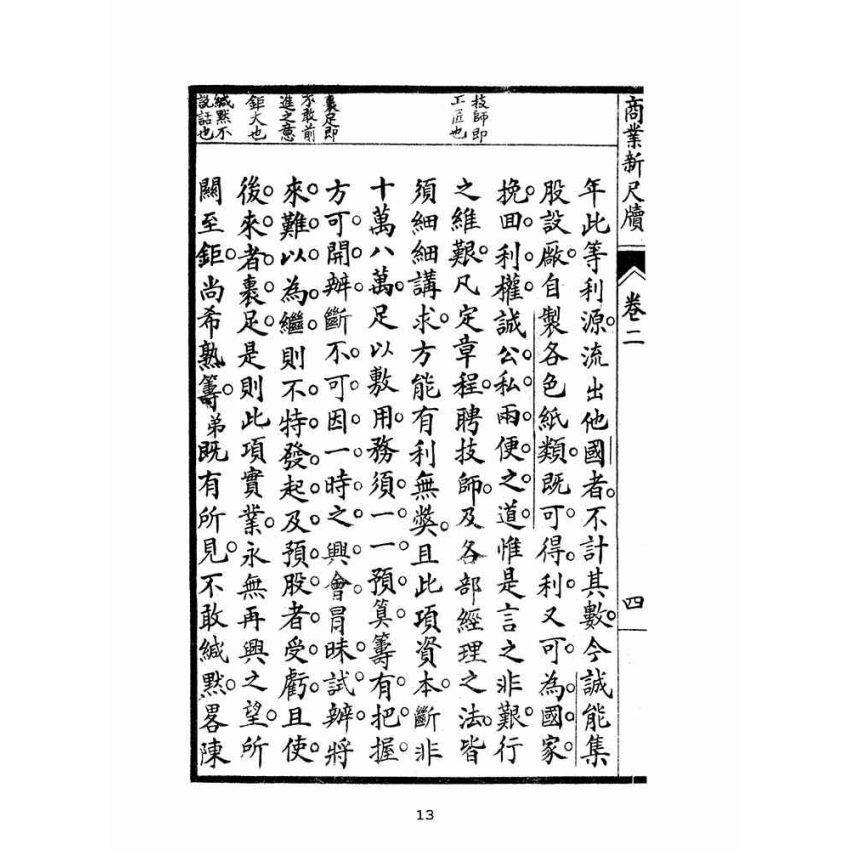 商業新尺牘
卷二
四
技師即
工匠也
裹足即
不敢前
進之意
鉅大也
緘默不
說話也
年此等利源。流出他國者。不計其數。今誠能集
股設廠。自製各色紙類。既可。得。利。又可。為。國。家。
挽。回利。權。誠公。私兩。便。之道。惟是言之非艱。行
之維艱。凡定章程。聘技師。及各部經理之法。皆
須細細講求。方能有利無獘。且此項資本。斷非
十萬八萬。足以敷用。務須。一一預。算。籌。有。把。握。
方可。開。辦。斷。不。可。因。一。時。之興。會。冐昧。試。辦。將
來。難。以。為。繼。則不特發。起。及。預。股者。受。虧。且使。
後。來。者。裹足。是則此項實業。永無再興之望。所
關至鉅。尚希熟籌。弟既有所見。不敢緘默。畧陳
13